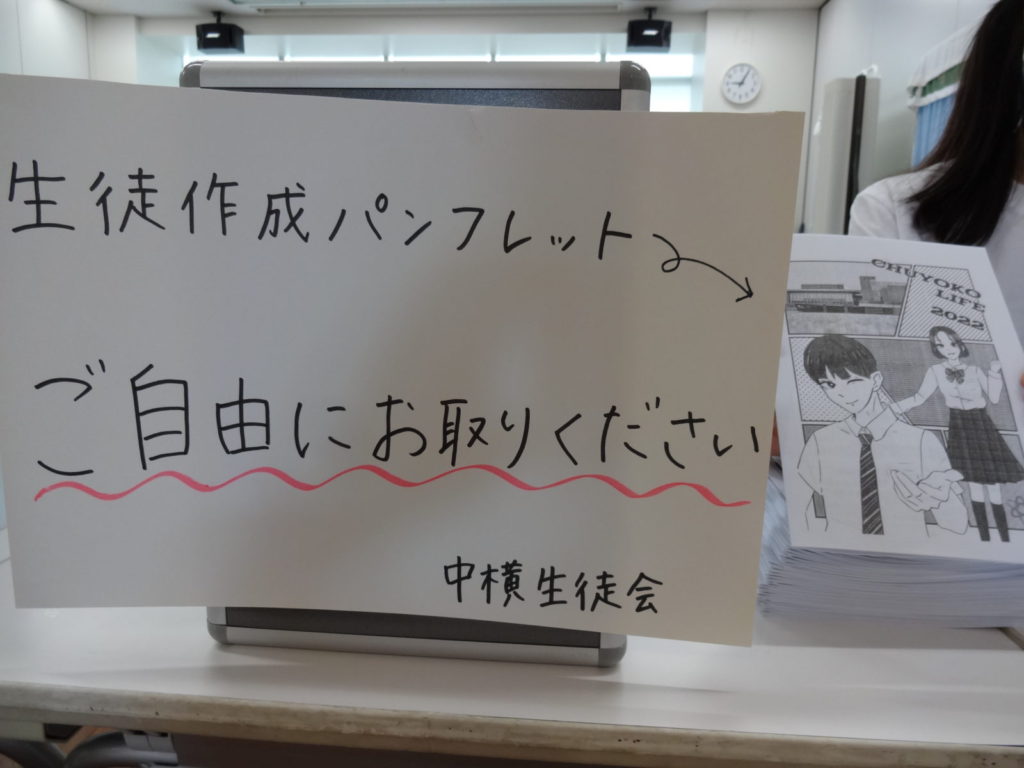 生徒作成パンフレット
ご自由にお取りください
中横生徒会
CHUYOKO
LIFE
2022